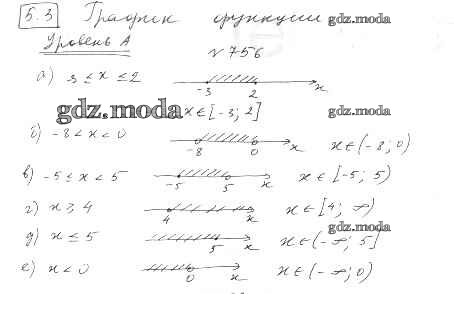 5.3 График функции gdz.moda
Уровень А
№756
а) 3 ≤ x ≤ 2 -3 2 x
gdz.moda x∈[-3; 2] gdz.moda
б) -8 < x < 0 -8 0 x x∈(-8; 0)
в) -5 ≤ x < 5 -5 5 x x∈[-5; 5)
г) x ≥ 4 4 x x∈[4; ∞)
gdz.moda
д) x ≤ 5 5 x x∈(-∞; 5]
е) x < 0 0 x x∈(-∞; 0)